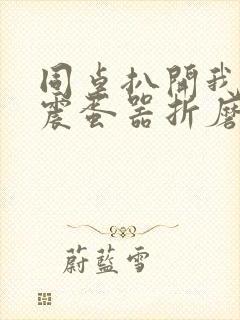 同桌扒開我
震蛋器折磨
蔚藍雪